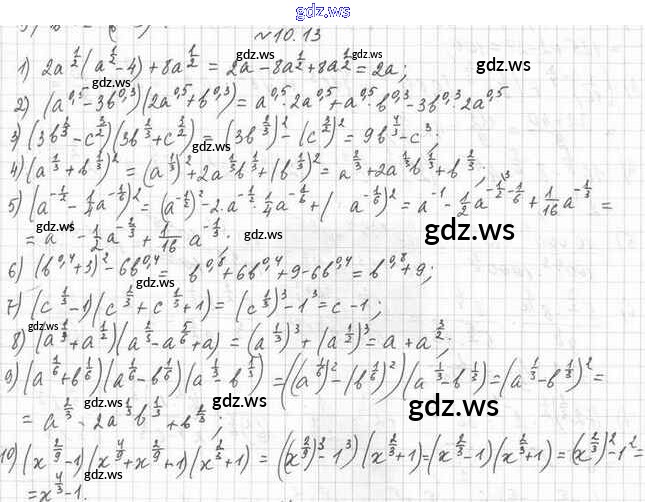 gdz.ws
№10.13
1) 2a^{1/2}(a^{1/2}-4)+8a^{1/2} = 2a-8a^{1/2}+8a^{1/2}=2a;
gdz.ws
gdz.ws
gdz.ws
2) (a^{0,5}-3b^{0,3})(2a^{0,5}+b^{0,3}) = a^{0,5}·2a^{0,5}+a^{0,5}·b^{0,3}-3b^{0,3}·2a^{0,5}
3) (3b^{2/3}-c^{3/2})(3b^{2/3}+c^{3/2}) = (3b^{2/3})^2-(c^{3/2})^2=9b^{4/3}-c^3;
gdz.ws
4) (a^{1/3}+b^{1/3})^2 = (a^{1/3})^2+2a^{1/3}b^{1/3}+(b^{1/3})^2=a^{2/3}+2a^{1/3}b^{1/3}+b^{2/3};
5) (a^{-1/2}-1/4a^{-1/6})^2=(a^{-1/2})^2-2·a^{-1/2}·1/4a^{-1/6}+( a^{-1/6})^2=a^{-1}-1/2a^{-1/2-1/6}+1/16a^{-1/3} =
gdz.ws
gdz.ws
gdz.ws
= a^{-1}-1/2a^{-2/3}+1/16 a^{-1/3};
6) (b^{0,4}+3)^2-6b^{0,4}= b^{0,8}+6b^{0,4}+9-6b^{0,4}=b^{0,8}+9;
7) (c^{1/3}-1)(c^{2/3}+c^{1/3}+1)=(c^{1/3})^3-1^3=c-1;
gdz.ws
8) (a^{1/3}+a^{1/2})(a^{2/3}-a^{5/6}+a) = (a^{1/3})^3+(a^{1/2})^3=a+a^{3/2};
9) (a^{1/6}+b^{1/6})(a^{1/6}-b^{1/6})(a^{1/3}-b^{1/3}) =((a^{1/6})^2-(b^{1/6})^2)(a^{1/3}-b^{1/3})=(a^{1/3}-b^{1/3})^2=
gdz.ws
gdz.ws
gdz.ws
= a^{2/3}-2a^{1/3}b^{1/3}+b^{2/3};
10) (x^{2/9}-1)(x^{4/9}+x^{2/9}+1)(x^{2/3}+1) = ((x^{2/9})^3-1^3)(x^{2/3}+1)=(x^{2/3}-1)(x^{2/3}+1)=(x^{2/3})^2-1^2=
gdz.ws
=x^{4/3}-1.